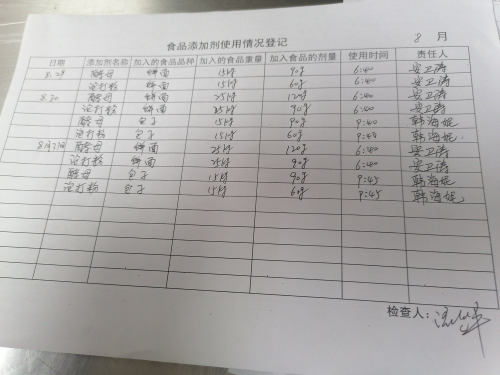 食品添加剂使用情况登记
8 月
日期 添加剂名称 加入的食品品种 加入的食品重量 加入食品的剂量 使用时间 责任人
8.29 酵母 饼面 15kg 90g 6:40 安卫涛
泡打粉 饼面 15kg 60g 6:40 安卫涛
8.30 酵母 饼面 25kg 120g 6:40 安卫涛
泡打粉 饼面 25kg 90g 6:40 安卫涛
酵母 包子 15kg 90g 9:45 韩海妮
泡打粉 包子 15kg 60g 9:45 韩海妮
8月31日 酵母 饼面 25kg 120g 6:40 安卫涛
泡打粉 饼面 25kg 90g 6:40 安卫涛
酵母 包子 15kg 90g 9:45 韩海妮
泡打粉 包子 15kg 60g 9:45 韩海妮
检查人: